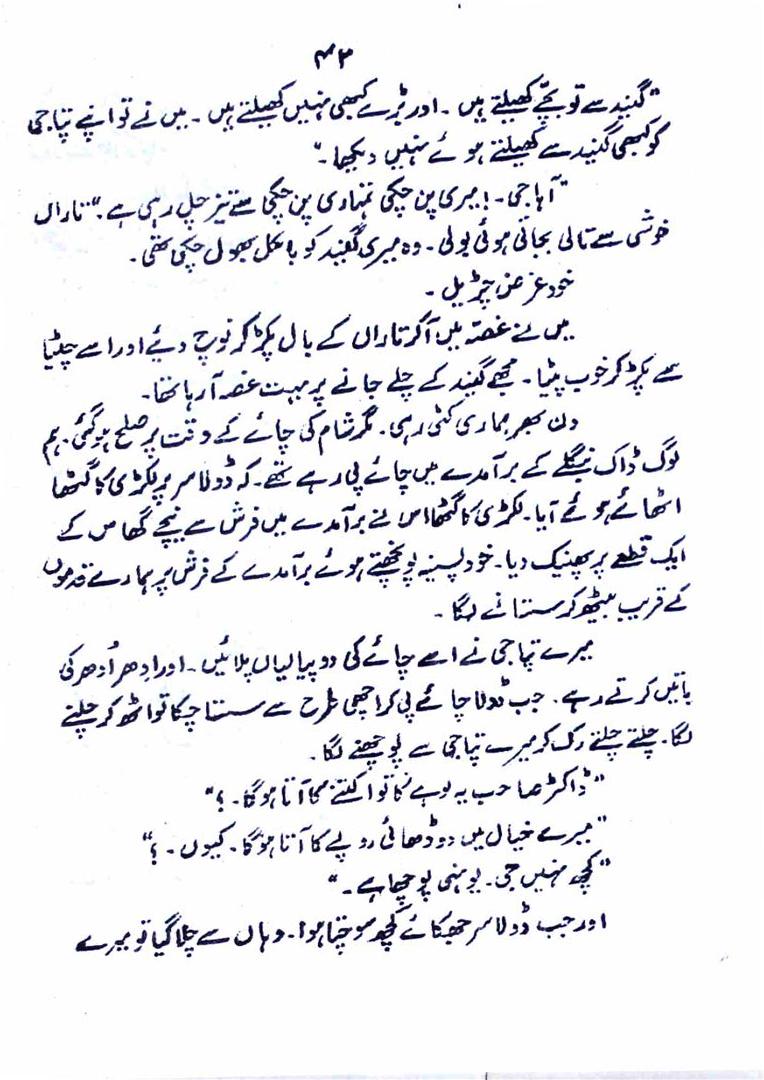 ۴۳
"گیند سے تو بچّے کھیلتے ہیں ۔ اور بڑے کبھی نہیں کھیلتے ہیں ۔ میں نے تو اپنے پتاجی
کو کبھی گیند سے کھیلتے ہوئے نہیں دیکھا ۔"
"آہا جی ۔ ! میری پن چکی تمہاری پن چکی سے تیز چل رہی ہے ۔" تاراں
خوشی سے تالی بجاتی ہوئی بولی ۔ وہ میری گیند کو بالکل بھول چکی تھی ۔
خود غرض چڑیل ۔
میں نے غصّہ میں آکر تاراں کے بال پکڑ کر نوچ دیئے اور اسے چٹیا
سے پکڑ کر خوب پیٹا ۔ مجھے گیند کے چلے جانے پر بہت غصہ آ رہا تھا ۔
دن بھر ہماری کٹی رہی ۔ مگر شام کی چائے کے وقت پر صلح ہو گئی ۔ ہم
لوگ ڈاک بنگلے کے برآمدے میں چائے پی رہے تھے ۔ کہ ڈولا سر پر لکڑی کا گٹھا
اٹھائے ہوئے آیا ۔ لکڑی کا گٹھا اس نے برآمدے میں فرش سے نیچے گھاس کے
ایک قطعے پر پھینک دیا ۔ خود پسینہ پونچھتے ہوئے برآمدے کے فرش پر ہمارے قدموں
کے قریب بیٹھ کر سستانے لگا ۔
میرے پتاجی نے اسے چائے کی دو پیالیاں پلائیں ۔ اور اِدھر اُدھر کی
باتیں کرتے رہے ۔ جب ڈولا چائے پی کر اچھی طرح سے سستا چکا تو اٹھ کر چلنے
لگا ۔ چلتے چلتے رک کر میرے پتاجی سے پوچھنے لگا ۔
"ڈاکٹر صاحب یہ لوہے کا توا کتنے کا آتا ہوگا ۔ ؟"
"میرے خیال میں دو ڈھائی روپے کا آتا ہوگا ۔ کیوں ۔ ؟"
"کچھ نہیں جی ۔ یونہی پوچھا ہے ۔"
اور جب ڈولا سر جھکائے کچھ سوچتا ہوا ۔ وہاں سے چلا گیا تو میرے